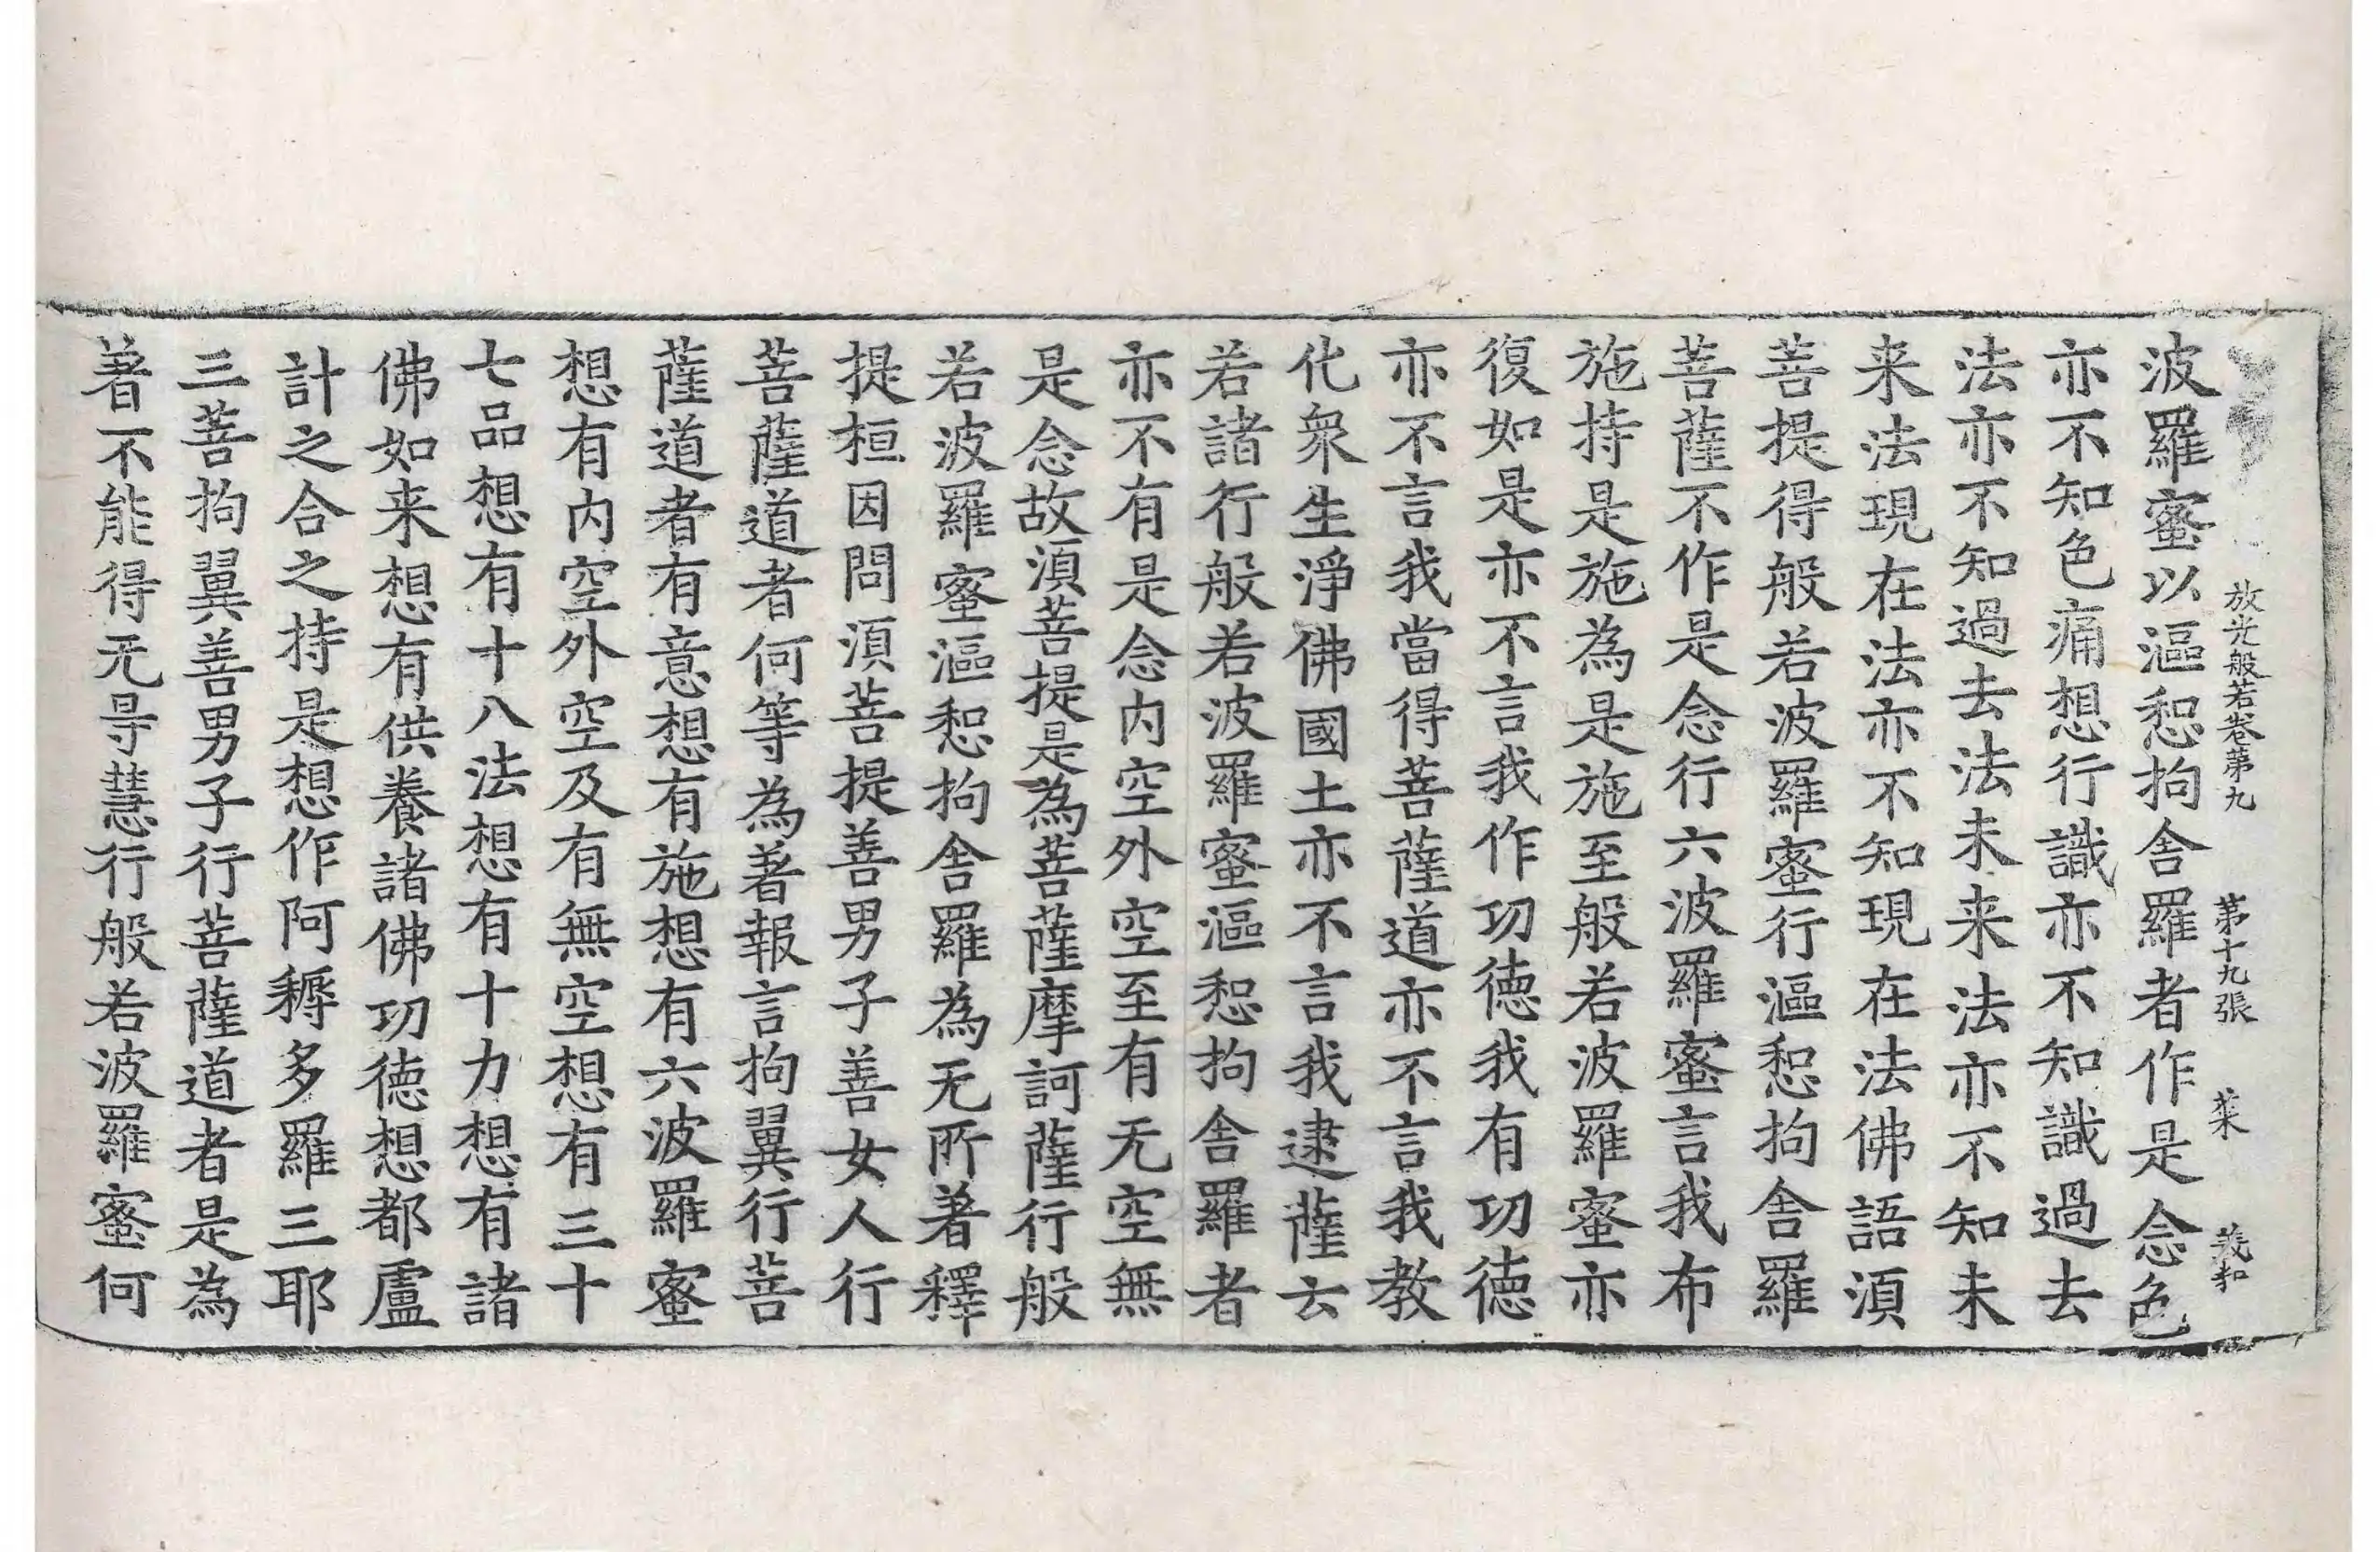 放光般若卷第九 第十九張 菜 義和
波羅蜜以漚惒拘舍羅者作是念色
亦不知色痛想行識亦不知識過去
法亦不知過去法未来法亦不知未
来法現在法亦不知現在法佛語湏
菩提得般若波羅蜜行漚惒拘舍羅
菩薩不作是念行六波羅蜜言我布
施持是施為是施至般若波羅蜜亦
復如是亦不言我作功德我有功德
亦不言我當得菩薩道亦不言我教
化衆生淨佛國土亦不言我逮薩云
若諸行般若波羅蜜漚惒拘舍羅者
亦不有是念内空外空至有无空無
是念故湏菩提是為菩薩摩訶薩行般
若波羅蜜漚惒拘舍羅為无所著釋
提桓因問湏菩提善男子善女人行
菩薩道者何等為著報言拘翼行菩
薩道者有意想有施想有六波羅蜜
想有内空外空及有無空想有三十
七品想有十八法想有十力想有諸
佛如来想有供養諸佛功德想都盧
計之合之持是想作阿耨多羅三耶
三菩拘翼善男子行菩薩道者是為
著不能得无㝵慧行般若波羅蜜何